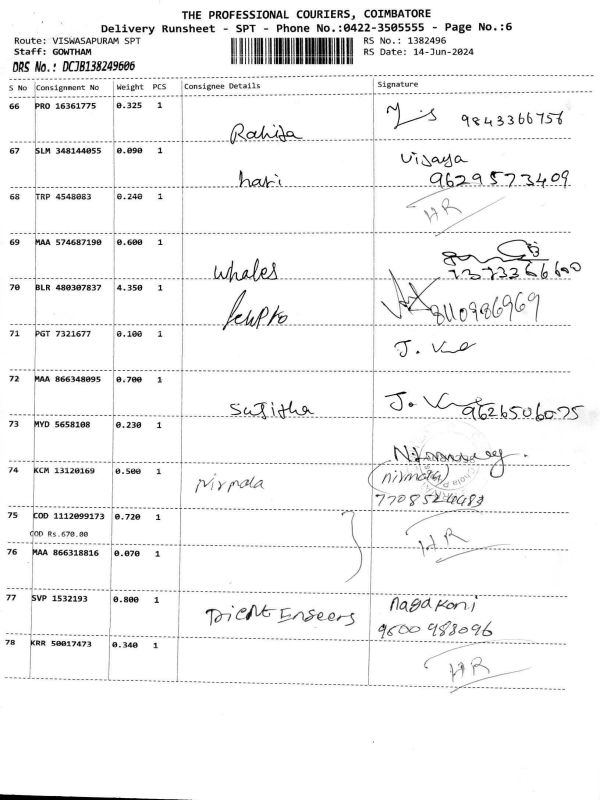 THE PROFESSIONAL COURIERS, COIMBATORE
Delivery Runsheet - SPT - Phone No.:0422-3505555 - Page No.:6
Route: VISWASAPURAM SPT RS No.: 1382496
Staff: GOWTHAM RS Date: 14-Jun-2024
DRS No.: DCJB138249606
S No Consignment No Weight PCS Consignee Details Signature
66 PRO 16361775 0.325 1
9843366756
67 SLM 348144055 0.090 1 Vijaya
hari 9629573409
68 TRP 4548083 0.240 1 HR
69 MAA 574687190 0.600 1
Whales
70 BLR 480307837 4.350 1
8110986969
71 PGT 7321677 0.100 1 J.
72 MAA 866348095 0.700 1 J.
Sujitha 9626506075
73 MYD 5658108 0.230 1
74 KCM 13120169 0.500 1 nirmala
Nirmala
75 COD 1112099173 0.720 1
COD Rs.670.00 HR
76 MAA 866318816 0.070 1
77 SVP 1532193 0.800 1
9600988096
78 KRR 50017473 0.340 1 HR